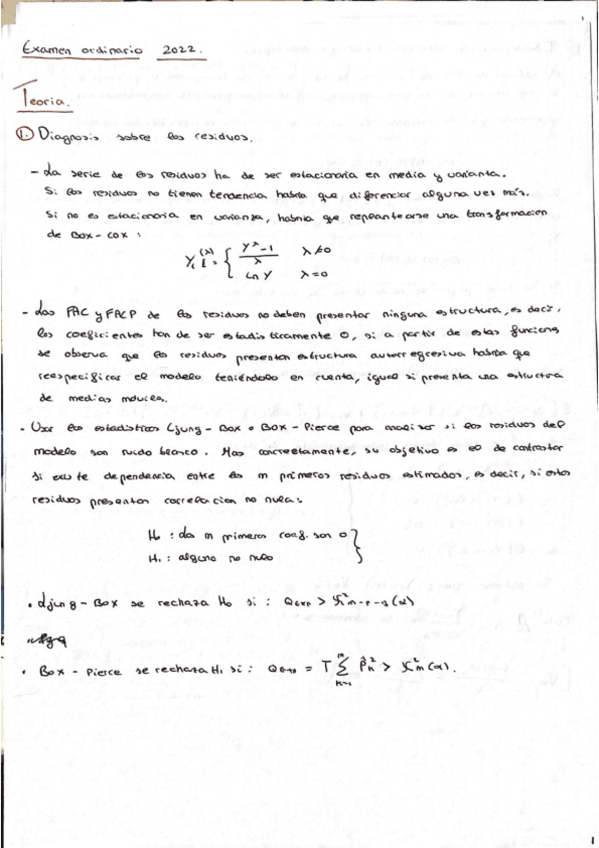 Examen ordinario 2022.
Teoria.
1. Diagnosis sobre los residuos.
- La serie de los residuos ha de ser estacionaria en media y varianta.
Si los residuos no tienen tendencia habria que diferenciar alguna ves más.
Si no es estacionaria en varianza, habria que repeantearse una transformacion
de Box-Cox:
Y_t^(λ) = { (Y^λ - 1)/λ λ≠0
Ln Y λ=0
- Las FAC y FACP de los residuos no deben presentar ninguna estructura, es decir,
los coeficientes han de ser estadisticamente 0, si a partir de estas funciones
se observa que los residuos presentan estructura autorregresiva habria que
reespecificar el modelo teniéndolo en cuenta, igual si presenta una estructura
de medias móviles.
- Usar los estadisticos Ljung-Box o Box-Pierce para analizar si los residuos del
modelo son ruido blanco. Mas concretamente, su objetivo es el de contrastar
si existe dependencia entre los m primeros residuos estimados, es decir, si estos
residuos presentan correlacion no nula:
H₀: Los m primeros coef. son 0
H₁: alguno no nulo
• Ljung-Box se rechaza H₀ si: Q_exp > χ²_m-p-q(α)
• Box-Pierce se rechaza H₁ si: Q_exp = T Σ ρ̂²_h > χ²_m(α).
1